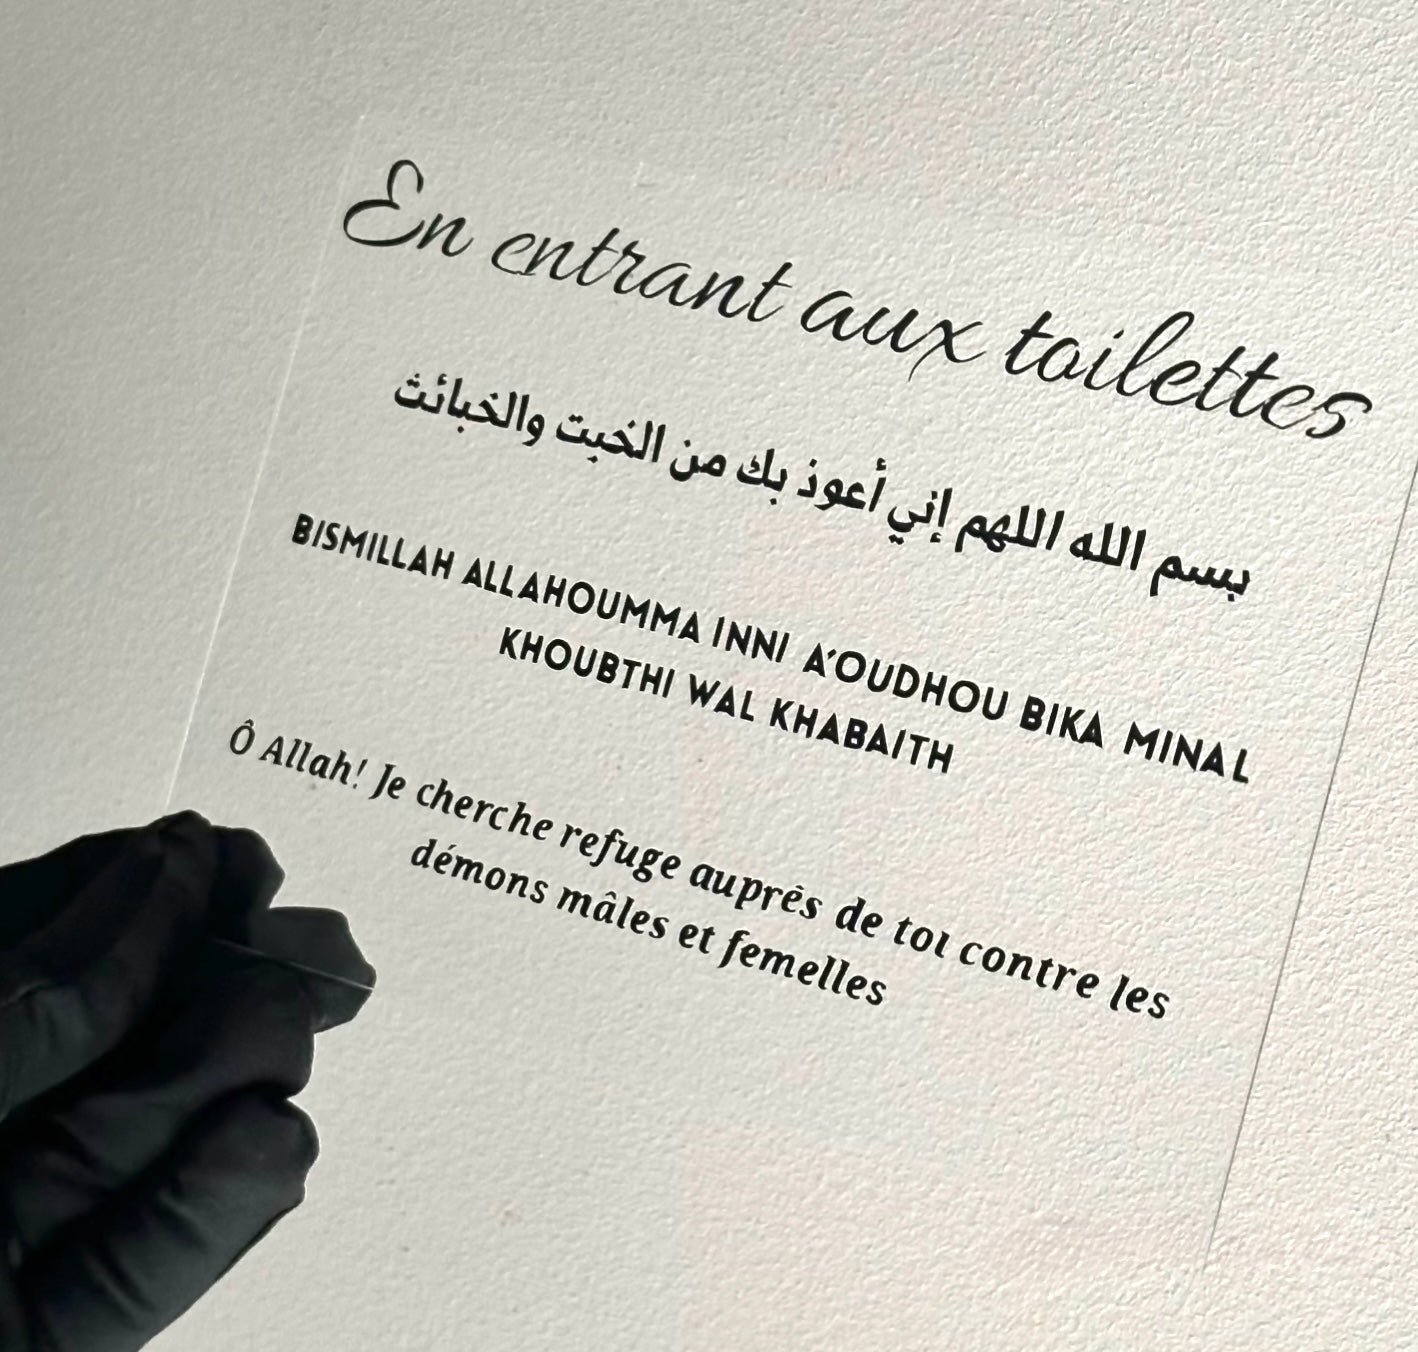 En entrant aux toilettes
بسم الله اللهم إني أعوذ بك من الخبت والخبائث
BISMILLAH ALLAHOUMMA INNI A'OUDHOU BIKA MINAL
KHOUBTHI WAL KHABAITH
Ô Allah! Je cherche refuge auprés de toi contre les
démons mâles et femelles